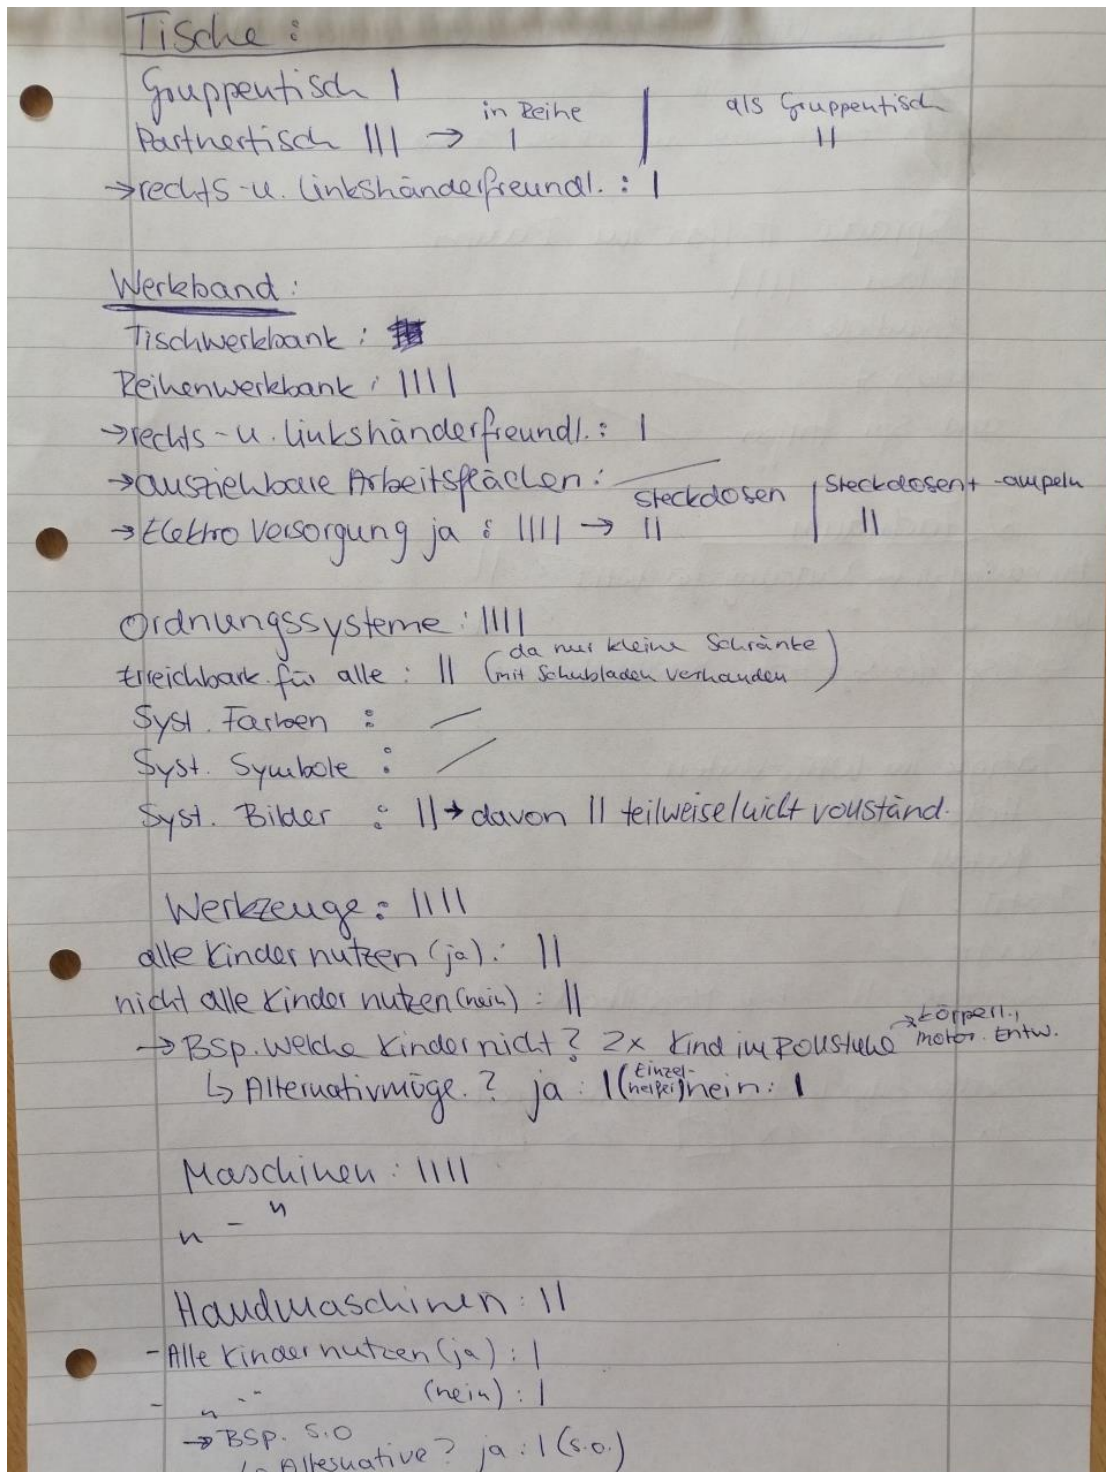 Tische :
Gruppentisch |
in Reihe als Gruppentisch
Partnertisch ||| → | ||
→rechts-u. linkshänderfreundl. : |
Werkband :
Tischwerkbank :
Reihenwerkbank : ||||
→rechts-u. linkshänderfreundl. : |
→ausziehbare Arbeitsflächen : —
Steckdosen | Steckdosen+ -ampeln
→Elektroversorgung ja : |||| → || | ||
Ordnungssysteme : ||||
Erreichbark. für alle : || (da nur kleine Schränke
mit Schubladen vorhanden)
Syst. Farben : —
Syst. Symbole : —
Syst. Bilder : ||→davon || teilweise/nicht vollständ.
Werkzeuge : ||||
alle Kinder nutzen (ja) : ||
nicht alle Kinder nutzen (nein) : ||
→ BSP. Welche Kinder nicht? 2x Kind im Rollstuhl →körperl., motor. Entw.
↳ Alternativmögl.? ja : | (Einzel-helfer) nein : |
Maschinen : ||||
" - "
Handmaschinen : ||
- Alle Kinder nutzen (ja) : |
- " -" (nein) : |
→ BSP. s.o
↳ Alternative? ja : | (s.o.)